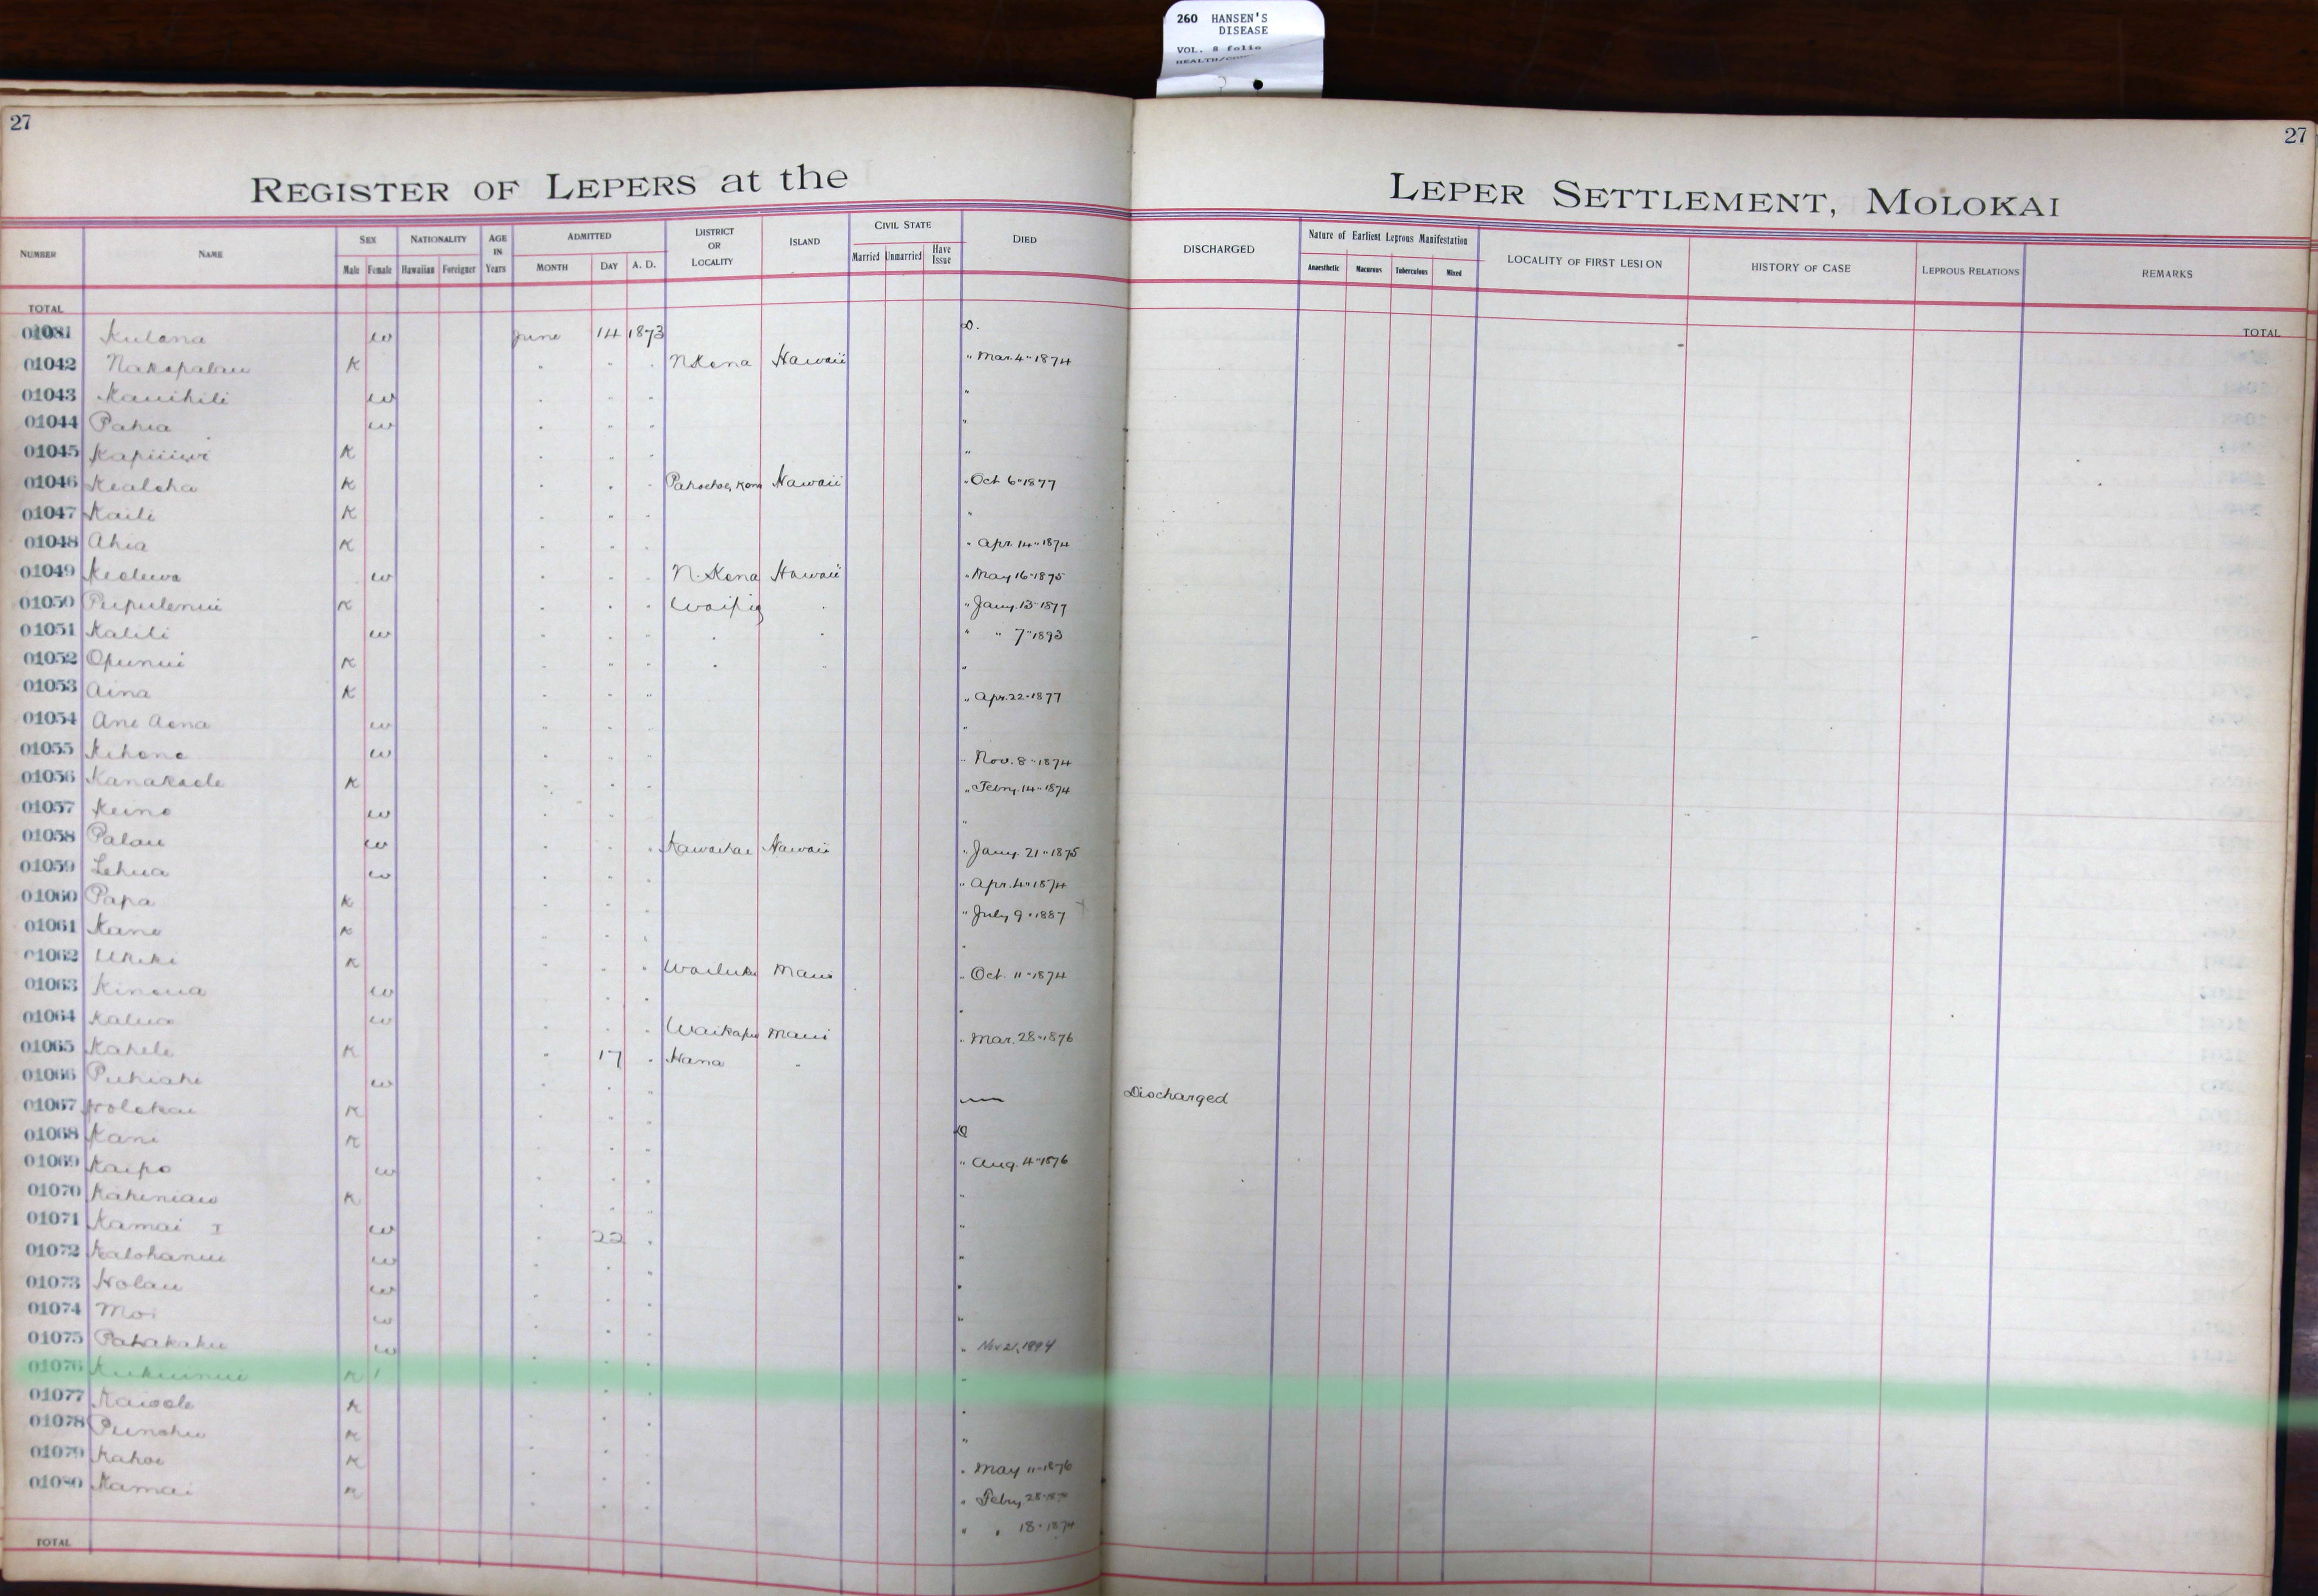 260 HANSEN'S
DISEASE
VOL. 8 folio
27
27
REGISTER OF LEPERS at the LEPER SETTLEMENT, MOLOKAI
NUMBER NAME SEX Male Female NATIONALITY Hawaiian Foreigner AGE IN Years ADMITTED MONTH DAY A. D. DISTRICT OR LOCALITY ISLAND CIVIL STATE Married Unmarried Have Issue DIED DISCHARGED Nature of Earliest Leprous Manifestation Anaesthetic Macurous Tuberculous Mixed LOCALITY OF FIRST LESION HISTORY OF CASE LEPROUS RELATIONS REMARKS
TOTAL TOTAL
Kulana w June 14 1873 D.
01042 Nakopalau K " " " N Kona Hawaii " Mar. 4" 1874
01043 Kauihili w " " " "
01044 Pahia w " " " "
01045 K " " " "
01046 Kealoha K " " " Hawaii " Oct 6" 1877
01047 Kaili K " " " "
01048 Ahia K " " " " Apr. 14" 1874
01049 Keoluwa w " " " N. Kona Hawaii " May 16" 1875
01050 Pupulenui K " " " Waipio " " Jany. 13" 1877
01051 Kalili w " " " " " " " 7" 1893
01052 Opunui K " " " " " "
01053 Aina K " " " " Apr. 22" 1877
01054 Ane Aona w " " " "
01055 Kihone w " " " " Nov. 8" 1874
01056 Kanakaole K " " " " Febry. 14" 1874
01057 Keino w " " " "
01058 Palau w " " " Kawaihae Hawaii " Jany. 21" 1875
01059 Lehua w " " " " Apr. 4" 1874
01060 Papa K " " " " July 9" 1887
01061 Kane K " " " "
01062 Ukeke K " " " Wailuku Maui " Oct. 11" 1874
01063 Kinoua w " " " "
01064 Kalua w " " " Waikapu Maui " Mar. 28" 1876
01065 Kahele K " 17 " Hana "
01066 Puhiahi w " " " Discharged
01067 Holokai K " " " D
01068 Kani K " " " " Aug. 4" 1876
01069 Kaipo w " " " "
01070 Kahiniau K " " " "
01071 Kamai I w " 22 " "
01072 Kalohanui w " " " "
01073 Holau w " " " "
01074 Moi w " " " " Nov 21, 1894
01075 Pahakaku w " " " "
01076 Kukuinui K " " " "
01077 Kaiaole K " " " "
01078 Punohu K " " " " May 11" 1876
01079 Kahoe K " " " " Febry 28"
01080 Kamai K " " " " " 18" 1874
TOTAL